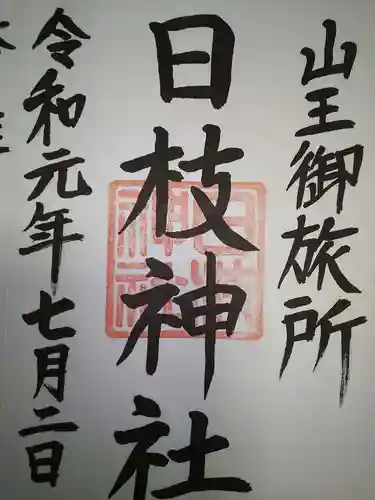 山王御旅所
日枝神社
令和元年七月二日